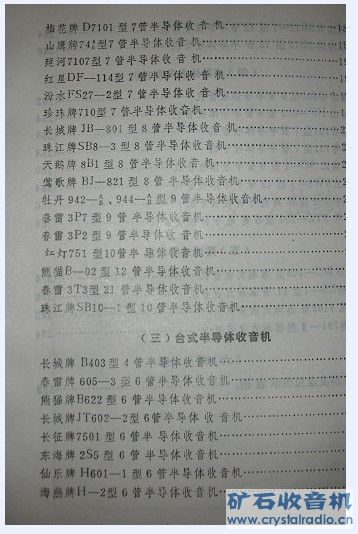 梅花牌 D7101 型 7管半导体收音机
山鹰牌74型 7 管半导体收音机
延河7107型 7 管半导体收音机
红星DF—114型 7 管半导体收音机
汾水FS27—2型 7 管半导体收音机
珍珠牌710型 7 管半导体收音机
长城牌 JB—801型 8 管半导体收音机
珠江牌SB8—3 型 8 管半导体收音机
天鹅牌 8B1 型 8 管半导体收音机
莺歌牌 BJ—821 型 8 管半导体收音机
牡丹 942—、944—型 9 管半导体收音机
春雷 3P7 型 9 管半导体收音机
春雷 3P2 型 9 管半导体收音机
红灯751 型10管半导体收音机
熊猫B—02型 12 管半导体收音机
春雷 3T3型 21 管半导体收音机
珠江牌SB10—1 型 10 管半导体收音机
（三）台式半导体收音机
长城牌 B403 型 4 管半导体收音机
春雷牌 605—3 型 6 管半导体收音机
熊猫牌B622 型 6 管半导体收音机
长城牌JT602—2型 6管半导体收音机
长征牌7501 型 6 管半导体收音机
东海牌 2S5 型 6 管半导体收音机
仙乐牌 H601—1 型 6管半导体收音机
海燕牌H—2型 6 管半导体收音机
矿石收音机
www.crystalradio.cn